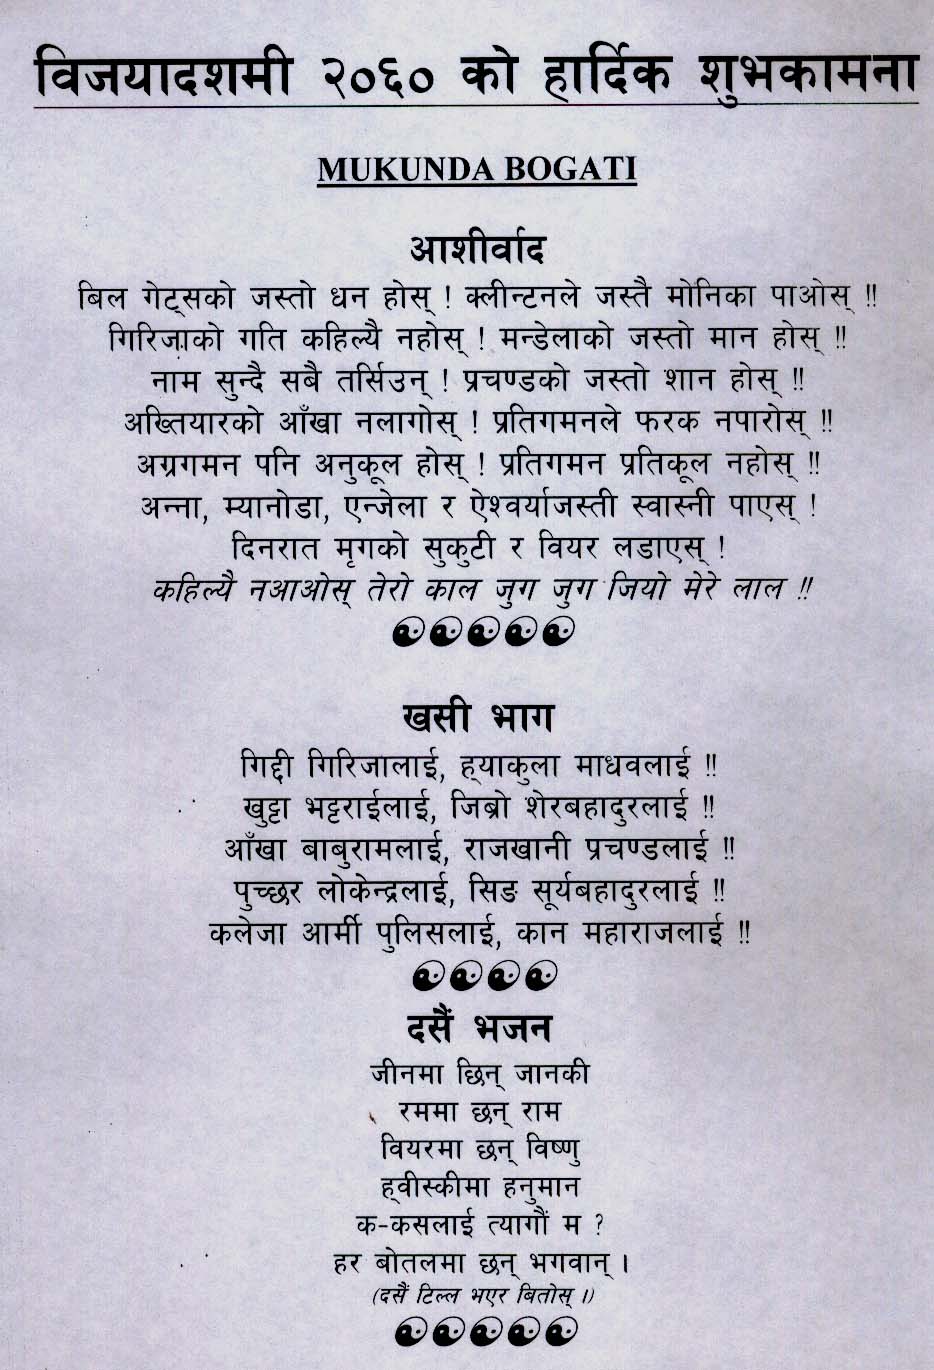 विजयादशमी २०६० को हार्दिक शुभकामना
MUKUNDA BOGATI
आशीर्वाद
बिल गेट्सको जस्तो धन होस् ! क्लीन्टनले जस्तै मोनिका पाओस् !!
गिरिजाको गति कहिल्यै नहोस् ! मन्डेलाको जस्तो मान होस् !!
नाम सुन्दै सबै तर्सिउन् ! प्रचण्डको जस्तो शान होस् !!
अख्तियारको आँखा नलागोस् ! प्रतिगमनले फरक नपारोस् !!
अग्रगमन पनि अनुकूल होस् ! प्रतिगमन प्रतिकूल नहोस् !!
अन्ना, म्यानोडा, एन्जेला र ऐश्वर्याजस्ती स्वास्नी पाएस् !
दिनरात मृगको सुकुटी र वियर लडाएस् !
कहिल्यै नआओस् तेरो काल जुग जुग जियो मेरे लाल !!
खसी भाग
गिद्दी गिरिजालाई, ह्याकुला माधवलाई !!
खुट्टा भट्टराईलाई, जिब्रो शेरबहादुरलाई !!
आँखा बाबुरामलाई, राजखानी प्रचण्डलाई !!
पुच्छर लोकेन्द्रलाई, सिङ सूर्यबहादुरलाई !!
कलेजा आर्मी पुलिसलाई, कान महाराजलाई !!
दसैं भजन
जीनमा छिन् जानकी
रममा छन् राम
वियरमा छन् विष्णु
ह्वीस्कीमा हनुमान
क-कसलाई त्यागौं म ?
हर बोतलमा छन् भगवान् ।
(दसैं टिल्ल भएर बितोस् ।)